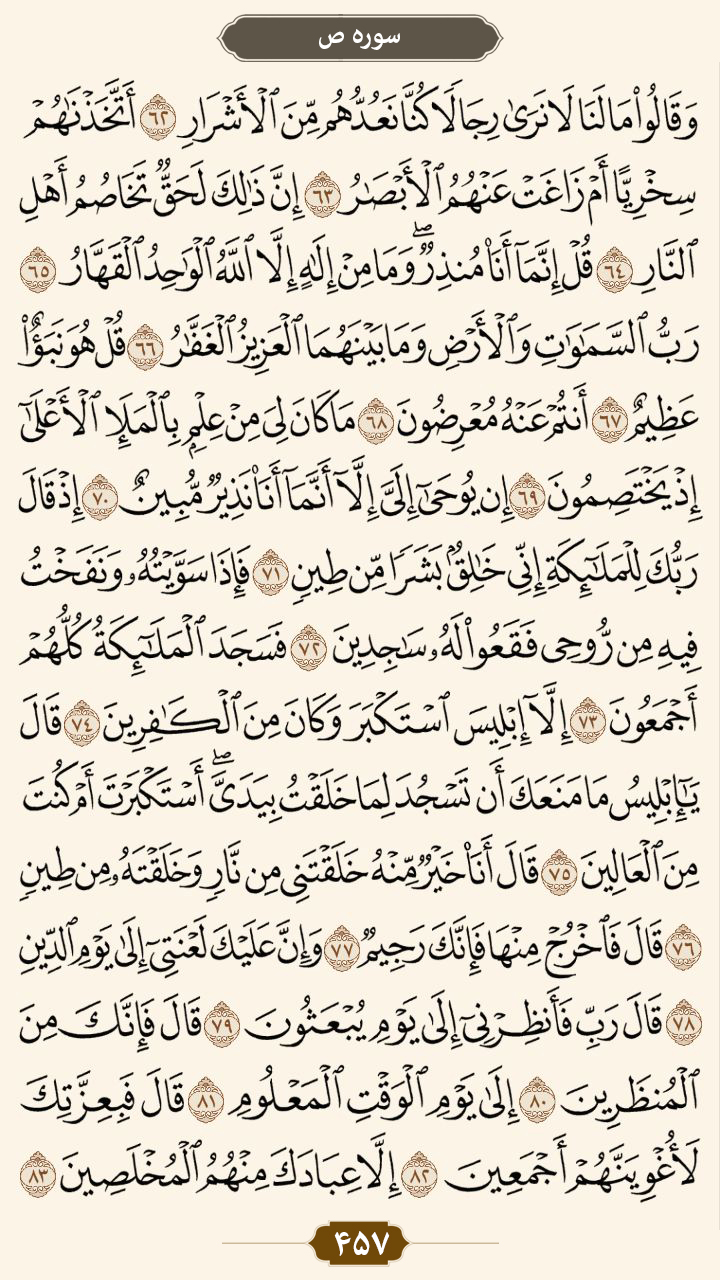 سوره ص
وَقَالُوا۟ مَا لَنَا لَا نَرَىٰ رِجَالًا كُنَّا نَعُدُّهُم مِّنَ ٱلْأَشْرَارِ ٦٢ أَتَّخَذْنَـٰهُمْ
سِخْرِيًّا أَمْ زَاغَتْ عَنْهُمُ ٱلْأَبْصَـٰرُ ٦٣ إِنَّ ذَٰلِكَ لَحَقٌّ تَخَاصُمُ أَهْلِ
ٱلنَّارِ ٦٤ قُلْ إِنَّمَآ أَنَا۠ مُنذِرٌ ۖ وَمَا مِنْ إِلَـٰهٍ إِلَّا ٱللَّهُ ٱلْوَٰحِدُ ٱلْقَهَّارُ ٦٥
رَبُّ ٱلسَّمَـٰوَٰتِ وَٱلْأَرْضِ وَمَا بَيْنَهُمَا ٱلْعَزِيزُ ٱلْغَفَّـٰرُ ٦٦ قُلْ هُوَ نَبَؤٌا۟
عَظِيمٌ ٦٧ أَنتُمْ عَنْهُ مُعْرِضُونَ ٦٨ مَا كَانَ لِىَ مِنْ عِلْمٍۭ بِٱلْمَلَإِ ٱلْأَعْلَىٰٓ
إِذْ يَخْتَصِمُونَ ٦٩ إِن يُوحَىٰٓ إِلَىَّ إِلَّآ أَنَّمَآ أَنَا۠ نَذِيرٌ مُّبِينٌ ٧٠ إِذْ قَالَ
رَبُّكَ لِلْمَلَـٰٓئِكَةِ إِنِّى خَـٰلِقٌۢ بَشَرًا مِّن طِينٍ ٧١ فَإِذَا سَوَّيْتُهُۥ وَنَفَخْتُ
فِيهِ مِن رُّوحِى فَقَعُوا۟ لَهُۥ سَـٰجِدِينَ ٧٢ فَسَجَدَ ٱلْمَلَـٰٓئِكَةُ كُلُّهُمْ
أَجْمَعُونَ ٧٣ إِلَّآ إِبْلِيسَ ٱسْتَكْبَرَ وَكَانَ مِنَ ٱلْكَـٰفِرِينَ ٧٤ قَالَ
يَـٰٓإِبْلِيسُ مَا مَنَعَكَ أَن تَسْجُدَ لِمَا خَلَقْتُ بِيَدَىَّ ۖ أَسْتَكْبَرْتَ أَمْ كُنتَ
مِنَ ٱلْعَالِينَ ٧٥ قَالَ أَنَا۠ خَيْرٌ مِّنْهُ خَلَقْتَنِى مِن نَّارٍ وَخَلَقْتَهُۥ مِن طِينٍ
٧٦ قَالَ فَٱخْرُجْ مِنْهَا فَإِنَّكَ رَجِيمٌ ٧٧ وَإِنَّ عَلَيْكَ لَعْنَتِىٓ إِلَىٰ يَوْمِ ٱلدِّينِ
٧٨ قَالَ رَبِّ فَأَنظِرْنِىٓ إِلَىٰ يَوْمِ يُبْعَثُونَ ٧٩ قَالَ فَإِنَّكَ مِنَ
ٱلْمُنظَرِينَ ٨٠ إِلَىٰ يَوْمِ ٱلْوَقْتِ ٱلْمَعْلُومِ ٨١ قَالَ فَبِعِزَّتِكَ
لَأُغْوِيَنَّهُمْ أَجْمَعِينَ ٨٢ إِلَّا عِبَادَكَ مِنْهُمُ ٱلْمُخْلَصِينَ ٨٣
۴۵۷